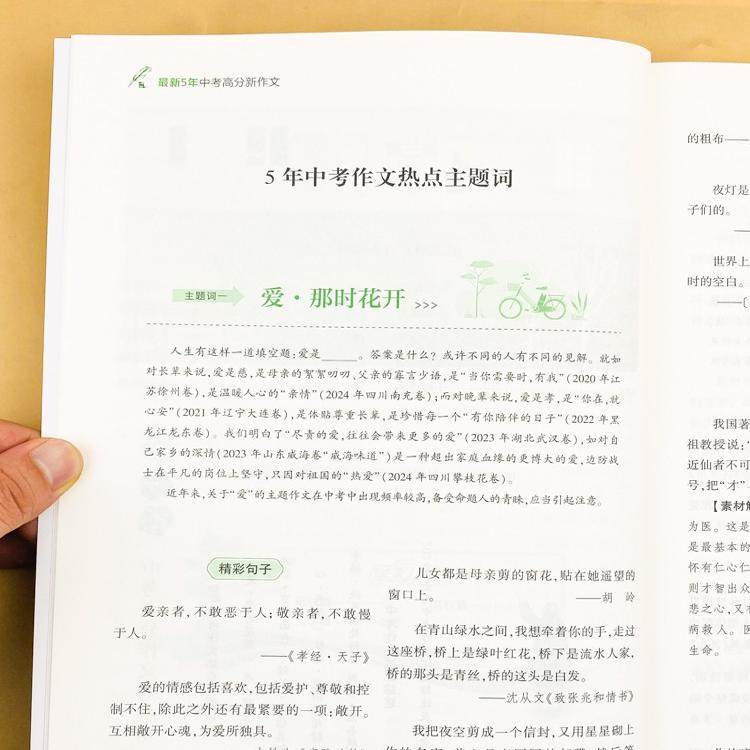 最新5年中考高分新作文
5 年中考作文热点主题词
主题词一
爱·那时花开 >>>
人生有这样一道填空题:爱是______。答案是什么?或许不同的人有不同的见解。就如
对长辈来说,爱是慈,是母亲的絮絮叨叨、父亲的寡言少语,是“当你需要时,有我”(2020年江
苏徐州卷),是温暖人心的“亲情”(2024年四川南充卷);而对晚辈来说,爱是孝,是“你在,就
心安”(2021年辽宁大连卷),是体贴尊重长辈,是珍惜每一个“有你陪伴的日子”(2022年黑
龙江龙东卷)。我们明白了“尽责的爱,往往会带来更多的爱”(2023年湖北武汉卷),如对自
己家乡的深情(2023年山东威海卷“威海味道”)是一种超出家庭血缘的更博大的爱,边防战
士在平凡的岗位上坚守,只因对祖国的“热爱”(2024年四川攀枝花卷)。
近年来,关于“爱”的主题作文在中考中出现频率较高,备受命题人的青睐,应当引起注意。
精彩句子
爱亲者,不敢恶于人;敬亲者,不敢慢
于人。
——《孝经·天子》
爱的情感包括喜欢,包括爱护、尊敬和控
制不住,除此之外还有最紧要的一项:敞开。
互相敞开心魂,为爱所独具。
儿女都是母亲剪的窗花,贴在她遥望的
窗口上。
——胡 龄
在青山绿水之间,我想牵着你的手,走过
这座桥,桥上是绿叶红花,桥下是流水人家,
桥的那头是青丝,桥的这头是白发。
——沈从文《致张兆和情书》
我把夜空剪成一个信封,又用星星砌上
的粗布——
夜灯是
子们的。
世界上
时的空白。
——〔
我国著
祖教授说:“
近仙者不可
号,把“才”
【素材解
为医。这是
是最基本的
怀有仁心仁
则才智出众
悲之心,又有
病救人。医
生命。